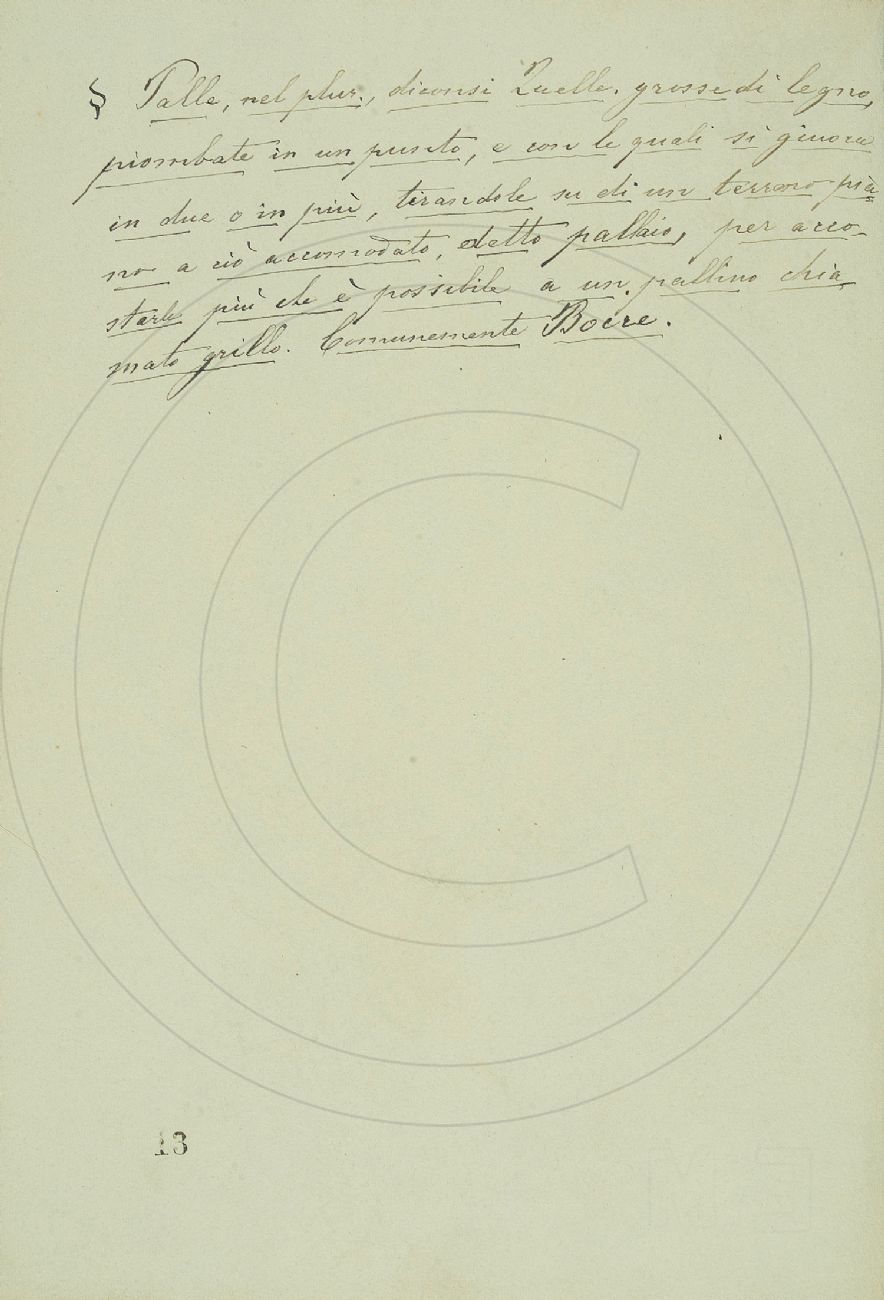 § Palle, nel plur., diconsi Quelle grosse di legno,
piombate in un punto, e con le quali si giuoca
in due o in più, tirandole su di un terreno pia=
no a ciò accomodato, detto pallaio, per acco-
starle più che è possibile a un pallino chia-
mato grillo. Comunemente Bocce.